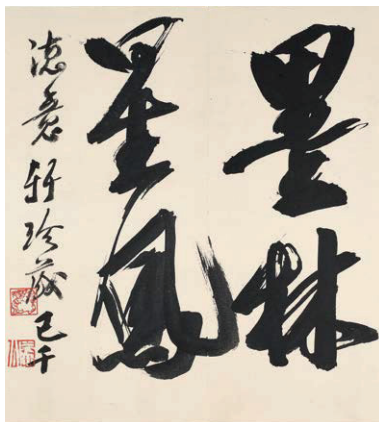 墨林
星鳳
德意軒珍藏己千